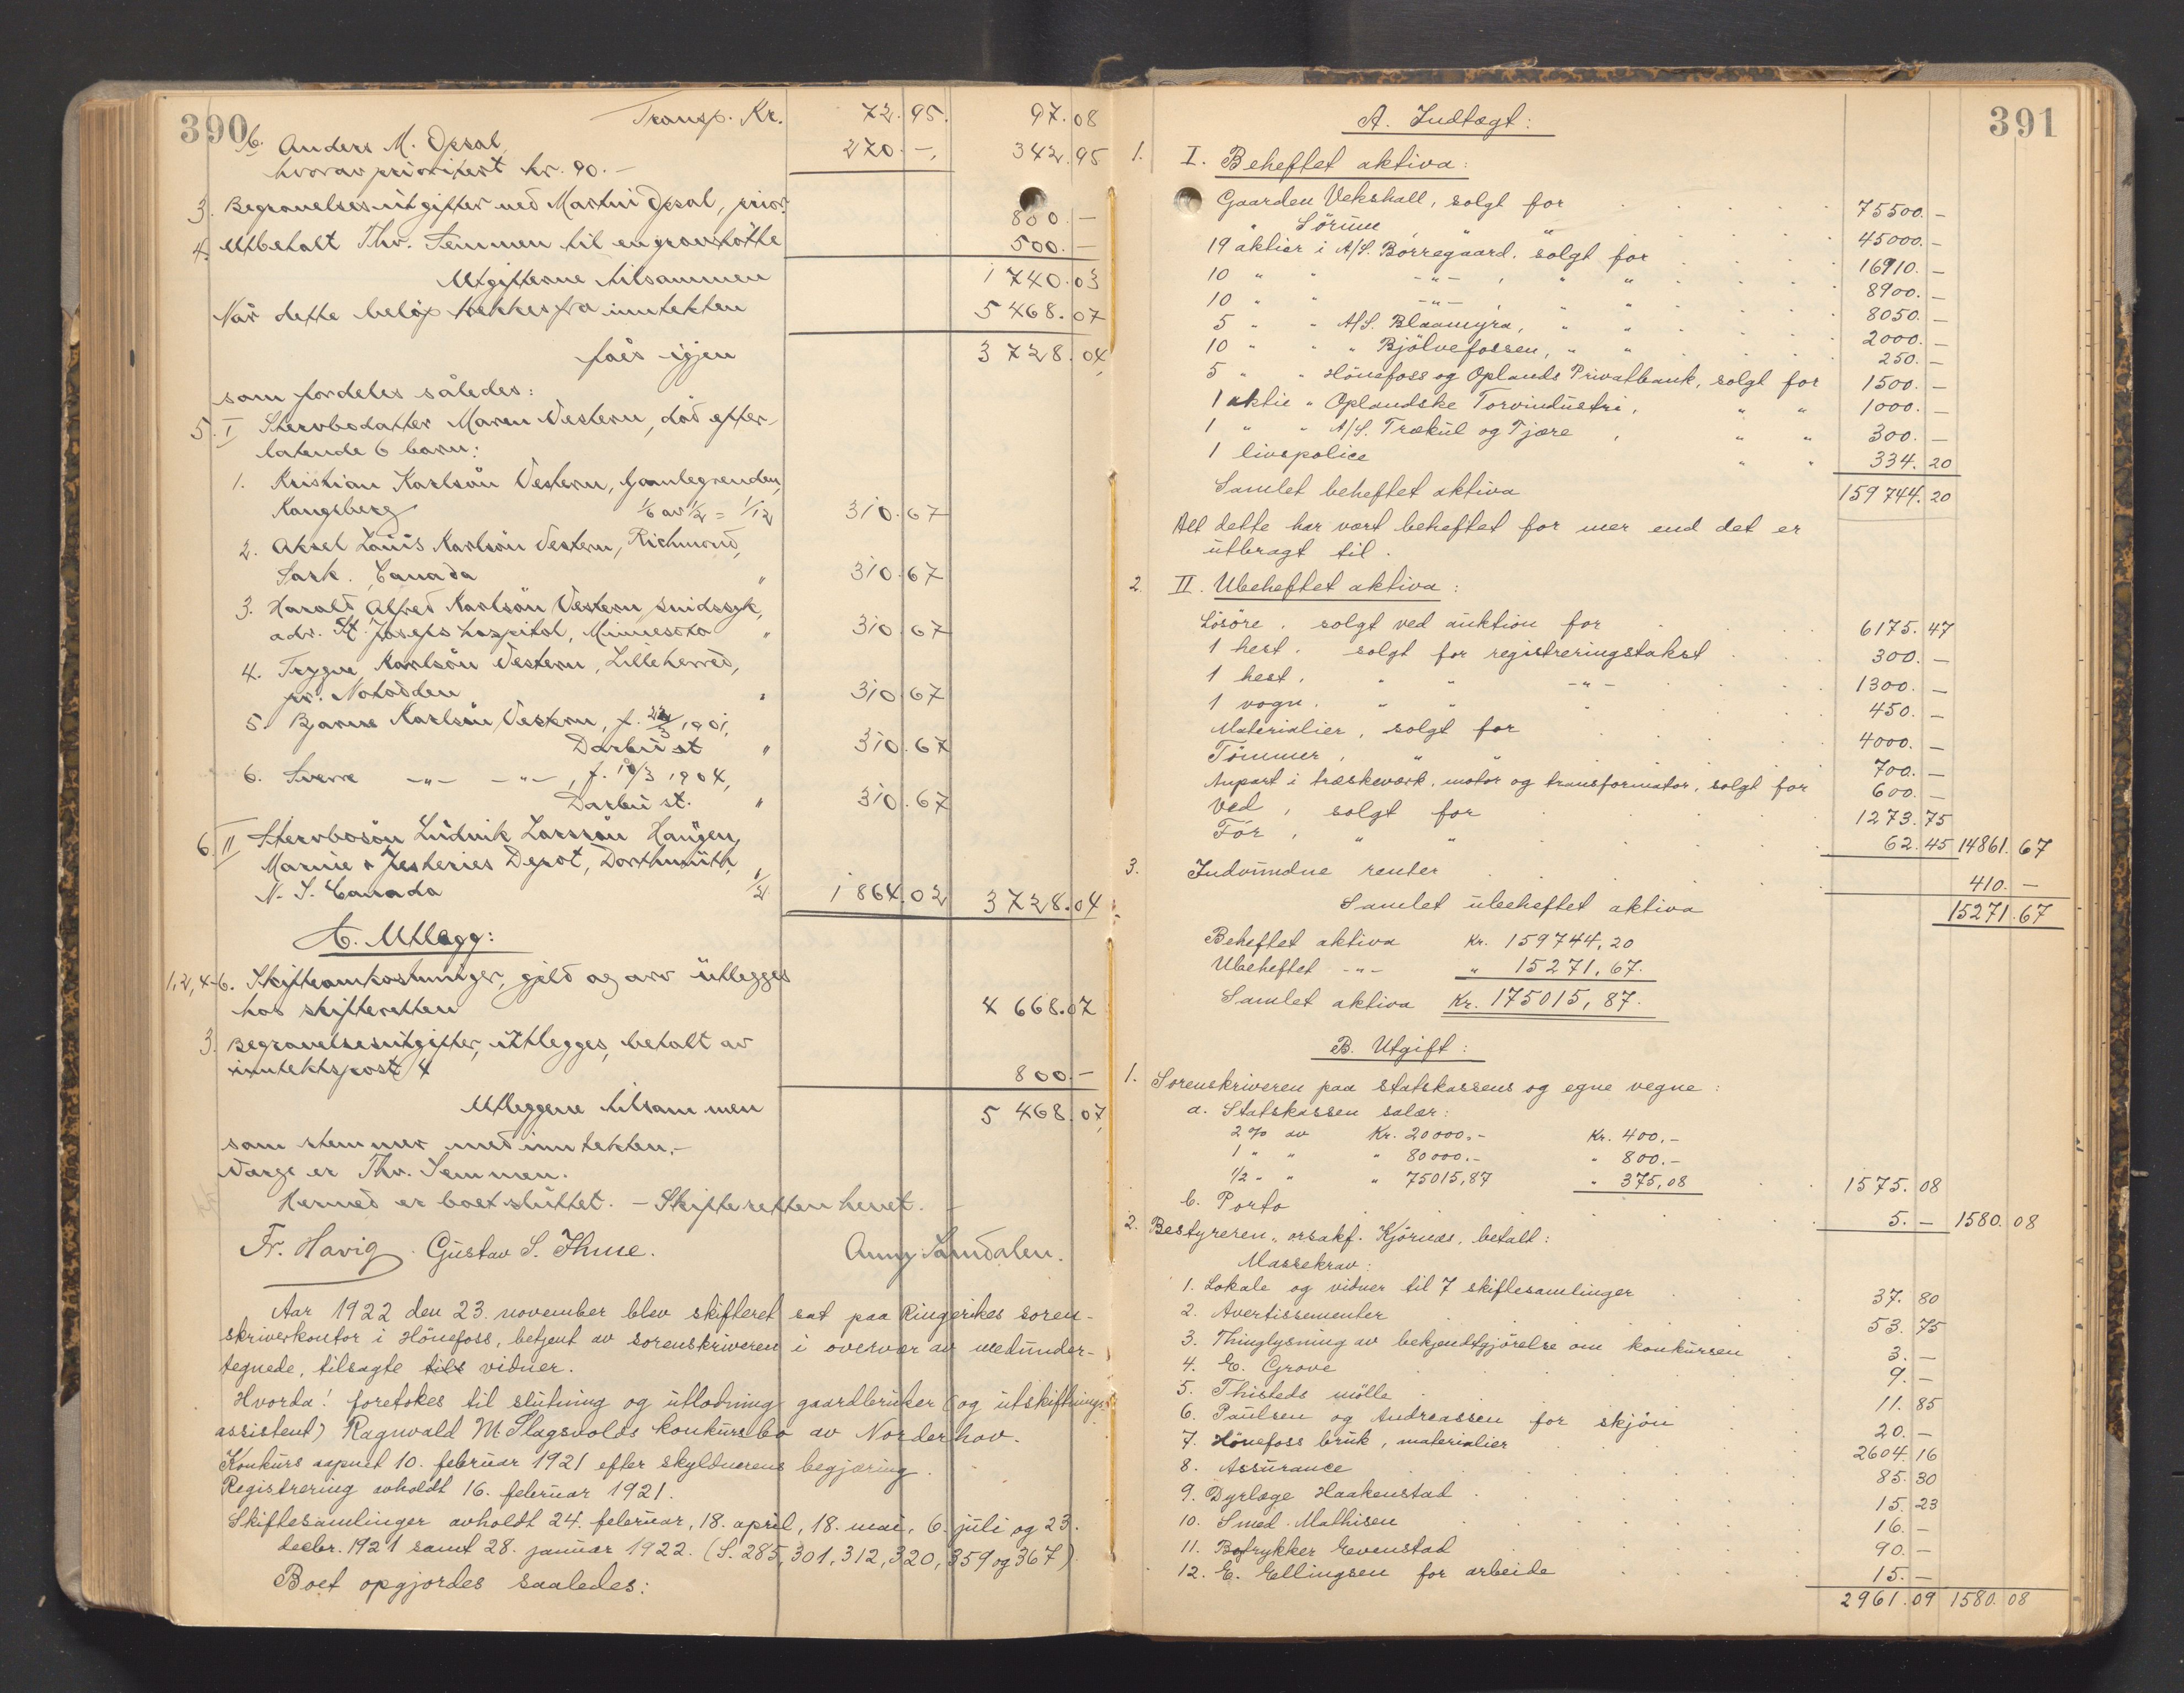 390
Transp. Kr. 72.95. 97.08
b. Anders M. Opsal, 270.-. 342.95
hvorav prioritert kr. 90.-
3. Begravelsesutgifter ved Martin Opsal, prior. 800.-
4. Utbetalt Thv. Semmen til en gravstötte 500.-
Utgifterne tilsammen 1740.03
Når dette belöp trekkes fra inntekten 5468.07
fåes igjen 3728.04
som fordeles således:
5. I Stervbodatter Maren Vestern, död efter-
latende 6 barn:
1. Kristian Karlsön Vestern, Gamlegrenden,
Kongsberg 1/6 av 1/2 = 1/12 310.67
2. Aksel Louis Karlsön Vestern, Richmond,
Sask. Canada " 310.67
3. Harald Alfred Karlsön Vestern, sindssyk,
adr. St. Josephs hospital, Minnesota " 310.67
4. Trygve Karlsön Vestern, Lilleherred,
pr. Notodden " 310.67
5. Bjarne Karlsön Vestern, f. 22/3 1901,
Darbu st " 310.67
6. Sverre -"- -"-, f. 19/3 1904,
Darbu st. " 310.67
6. II Stervbosön Ludvik Larssön Haugen,
Marine & Fesheries Depot, Dorthmuth,
N. S. Canada 1/2 1864.02 3728.04
C. Utlegg:
1,2,4-6. Skifteomkostninger, gjeld og arv utlegges
hos skifteretten 4668.07
3. Begravelsesutgifter, utlegges, betalt av
inntektspost 4 800.-
Utleggene tilsammen 5468.07,
som stemmer med inntekten.-
Verge er Thv. Semmen.
Hermed er boet sluttet. - Skifteretten hevet. -
Fr. Havig. Gustav S. Thue. Anny Sandalen.
Aar 1922 den 23. november blev skifteret sat paa Ringerikes soren-
skriverkontor i Hönefoss, betjent av sorenskriveren i overvær av medunder-
tegnede, tilsagte tils vidner.
Hvorda! foretokes til slutning og utlodning gaardbruker (og utskiftnings-
assistent) Ragnvald M. Slagsvolds konkursbo av Norderhov.
Konkurs aapnet 10. februar 1921 efter skyldnerens begjæring.
Registrering avholdt 16. februar 1921.
Skiftesamlinger avholdt 24. februar, 18. april, 18. mai, 6. juli og 23.
decbr. 1921 samt 28. januar 1922. (S. 285, 301, 312, 320, 359 og 367)
Boet opgjordes saaledes:
391
A. Indtægt:
1. I. Beheftet aktiva:
Gaarden Vekshall, solgt for 75500.-
" Sörum, " " 45000.-
19 aktier i A/S. Borregaard, solgt for 16910.-
10 " " -"- , " " 8900.-
10 " " -"- , " " 8050.-
5 " " A/S. Blaamyra, " " 2000.-
10 " " " Bjölvefossen, " " 250.-
5 " " Hönefoss og Oplands Privatbank, solgt for 1500.-
1 aktie " Oplandske Torvindustri, " " 1000.-
1 " " A/S. Trækul og Tjære, " " 300.-
1 livspolice " " 334.20
Samlet beheftet aktiva 159744.20
Alt dette har vært beheftet for mer end det er
utbragt til.
2. II. Ubeheftet aktiva:
Lösöre, solgt ved auktion for 6175.47
1 hest, solgt for registreringstakst 300.-
1 hest, " " -"- 1300.-
1 vogn, " " " 450.-
Materialier, solgt for 4000.-
Tömmer, " " 700.-
Anpart i træskeverk, motor og transformator, solgt for 600.-
Ved, solgt for 1273.75
Fór, " " 62.45 14861.67
3. Indvundne renter 410.-
Samlet ubeheftet aktiva 15271.67
Beheftet aktiva Kr. 159744,20
Ubeheftet -"- " 15271,67.
Samlet aktiva Kr. 175015,87.
B. Utgift:
1. Sorenskriveren paa statskassens og egne vegne:
a. Statskassen salær:
2% av Kr. 20000.- Kr. 400.-
1 " " " 80000.- " 800.-
1/2 " " " 75015,87 " 375,08 1575.08
b. Porto 5.- 1580.08
2. Bestyreren, orsakf. Kjörnæs, betalt:
Massekrav:
1. Lokale og vidner til 7 skiftesamlinger 37.80
2. Avertissementer 53.75
3. Thinglysning av bekjendtgjörelse om konkursen 3.-
4. E. Grove 9.-
5. Thisteds mölle 11.85
6. Paulsen og Andreassen for skjön 20.-
7. Hönefoss bruk, materialier 2604.16
8. Assurance 85.30
9. Dyrlæge Haakenstad 15.23
10. Smed Mathisen 16.-
11. Boktrykker Evenstad 90.-
12. E. Ellingsen for arbeide 15.-
2961.09 1580.08